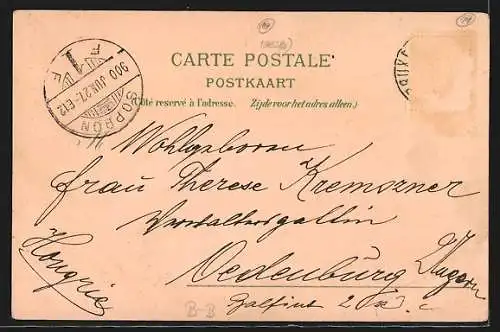 CARTE POSTALE
POSTKAART
(Côté reservé à l'adresse. Zijde voor het adres alleen.)
SOPRON
900 JUN. 27. E 12
F 1 F
Wohlgeboren
Frau Therese Kremozner
Verwaltersgattin
Oedenburg
Ungarn
Hongrie
2
B-B